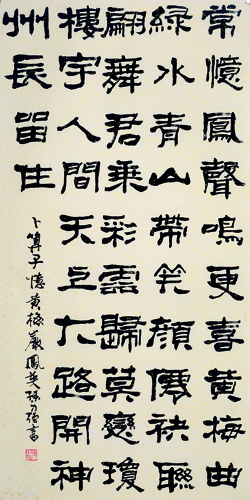 常憶鳳聲鳴更喜黃梅曲
綠水青山帶笑顏僊袂聯
翩舞君乘彩雲歸莫戀瓊
樓宇人間天上大路開神
州長留住
卜算子憶黃梅嚴鳳英 書